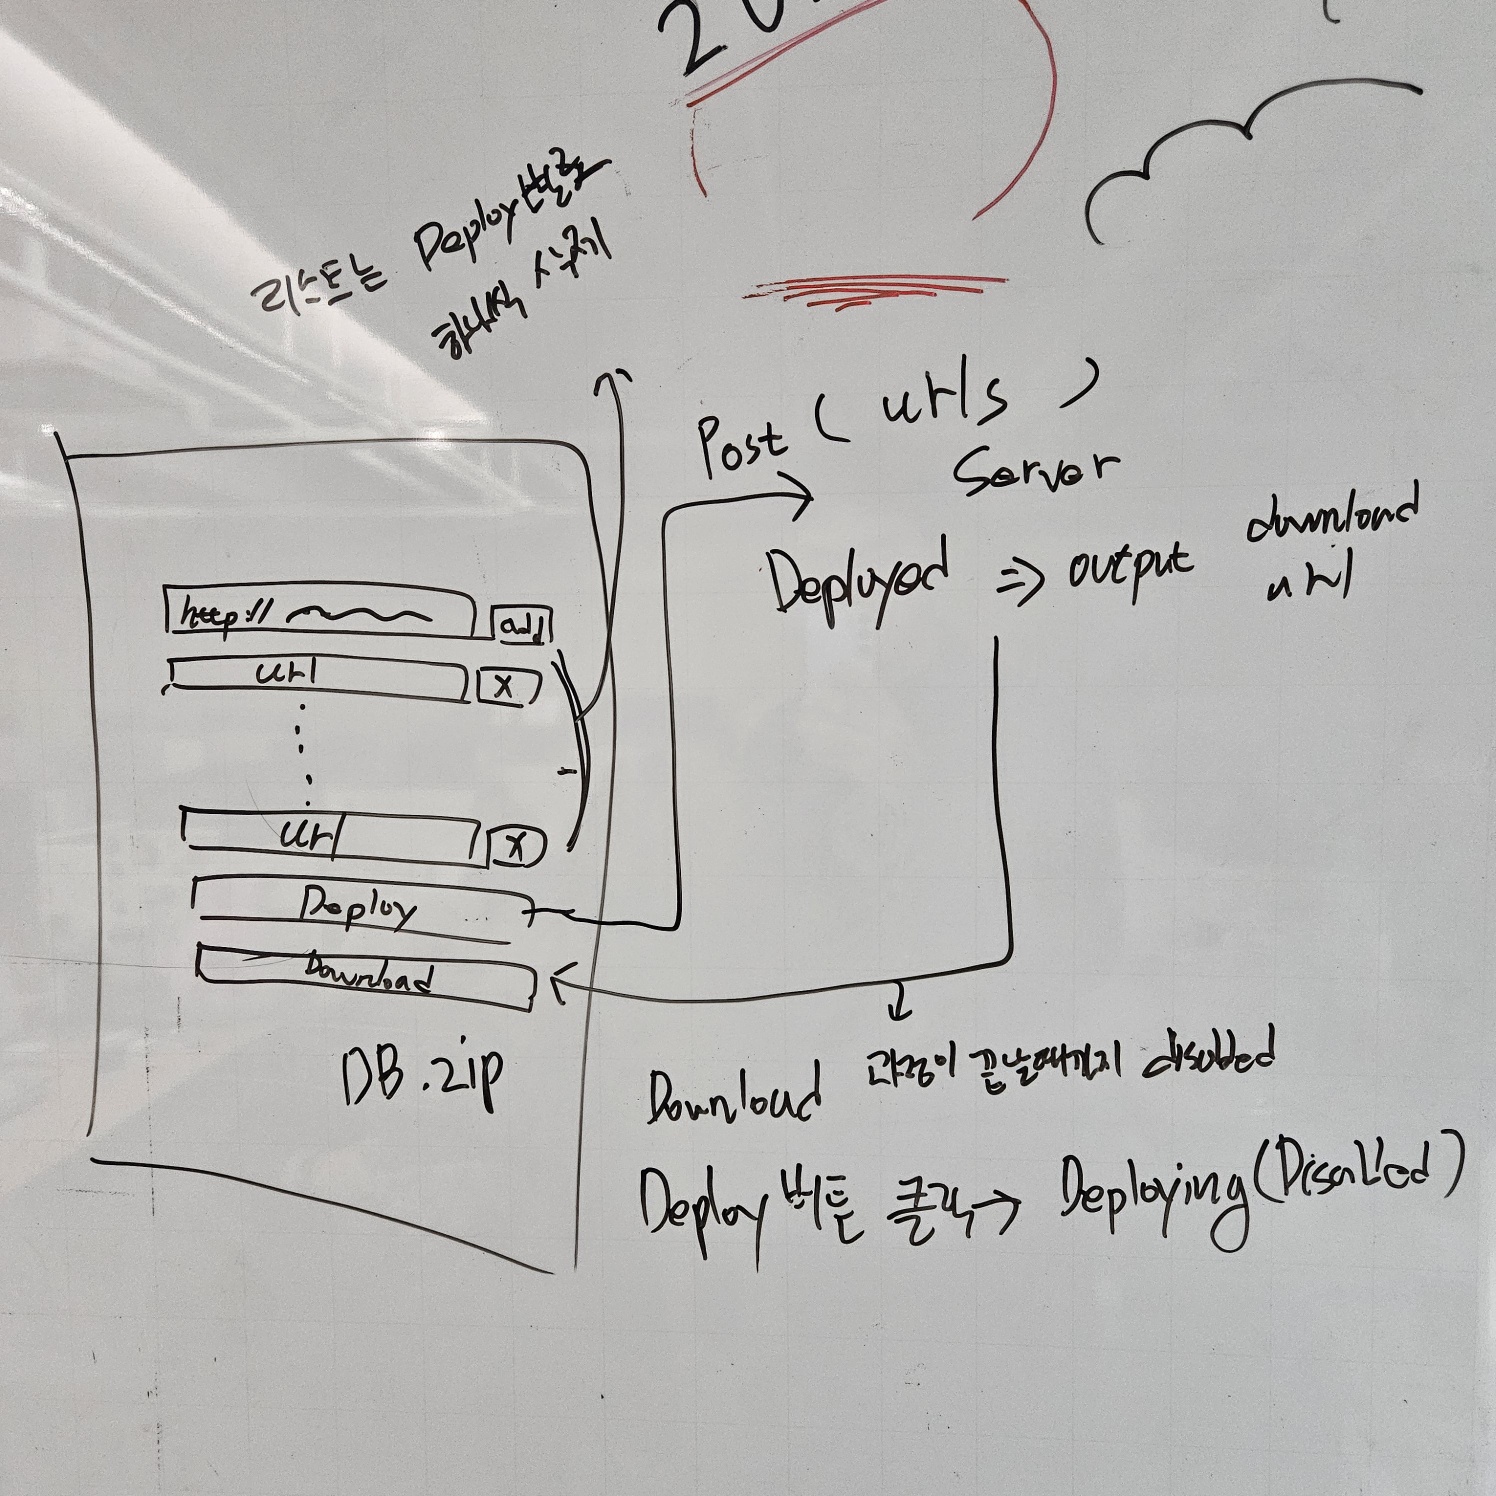 리스트는 Deploy 별로
하나씩 사라지기
Post ( urls )
Server
Deployed => output download url
http://
add
url
X
url
X
Deploy
Download
DB.zip
Download 과정이 끝날때까지 disabled
Deploy 버튼 클릭 → Deploying (Disabled)